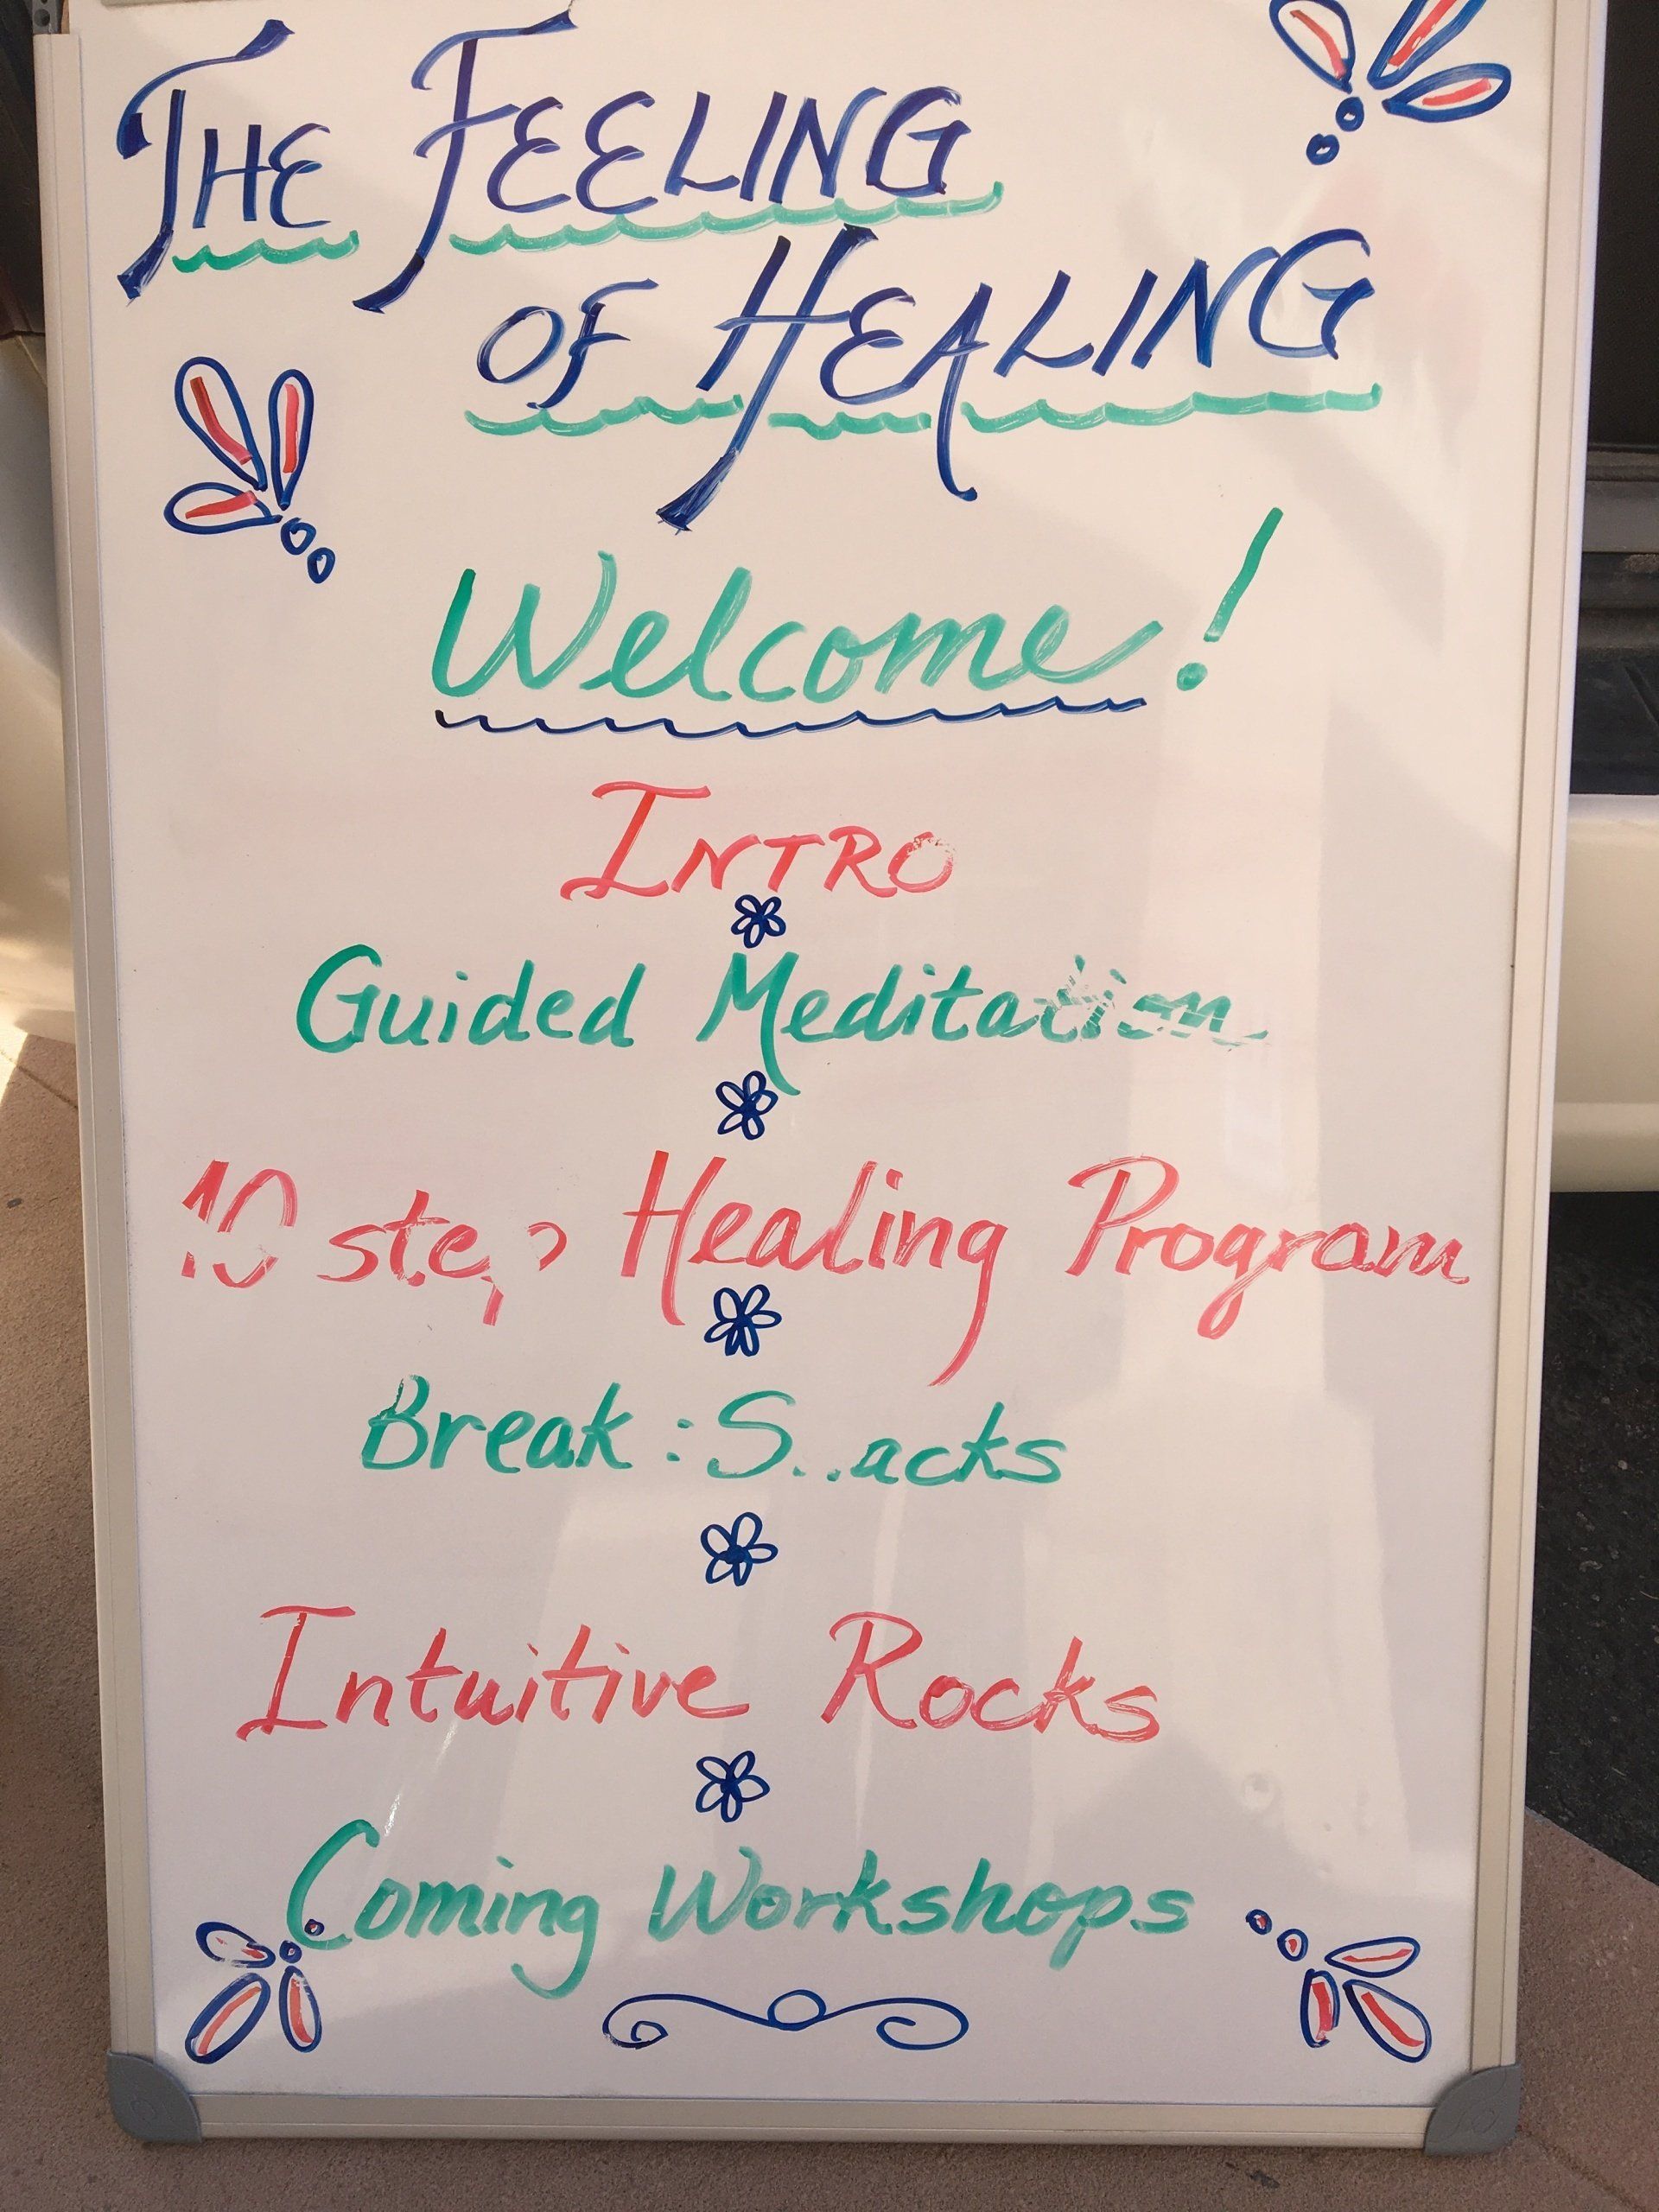 THE FEELING
OF HEALING
Welcome!
INTRO
Guided Meditation
10 step Healing Program
Break: Snacks
Intuitive Rocks
Coming Workshops